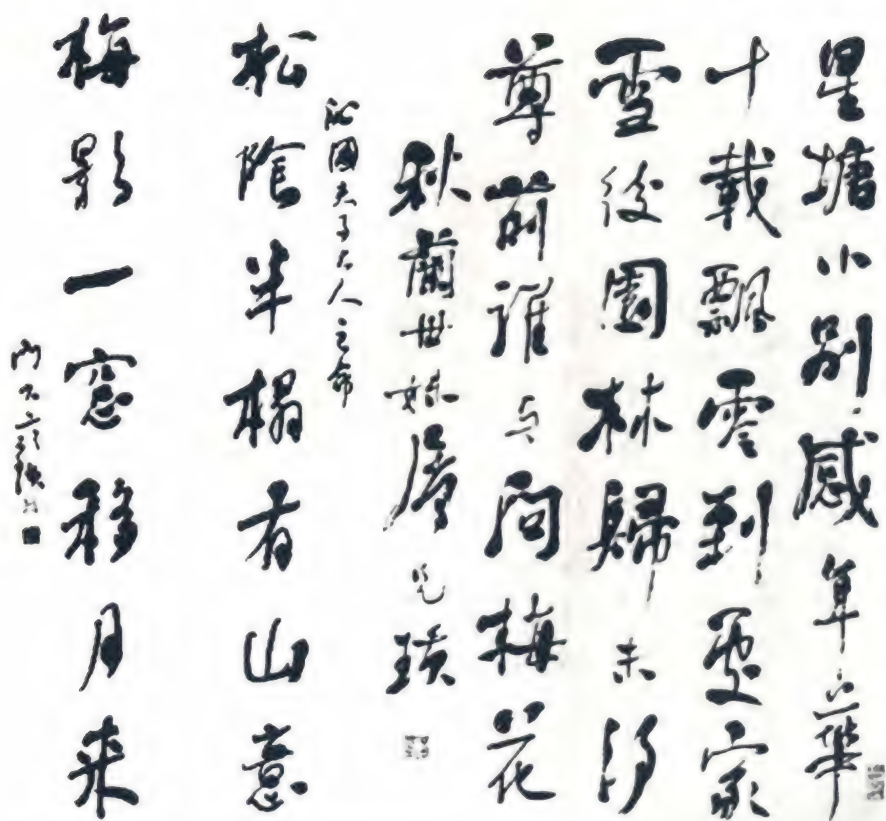 星塘小别感年華
十載飄零到處家
雪後園林歸未得
尊前誰与問梅花
秋蘭世妹屬 兄璜
沁園夫子大人之命
松陰半榻有山意
梅影一窓移月来
門人齊璜